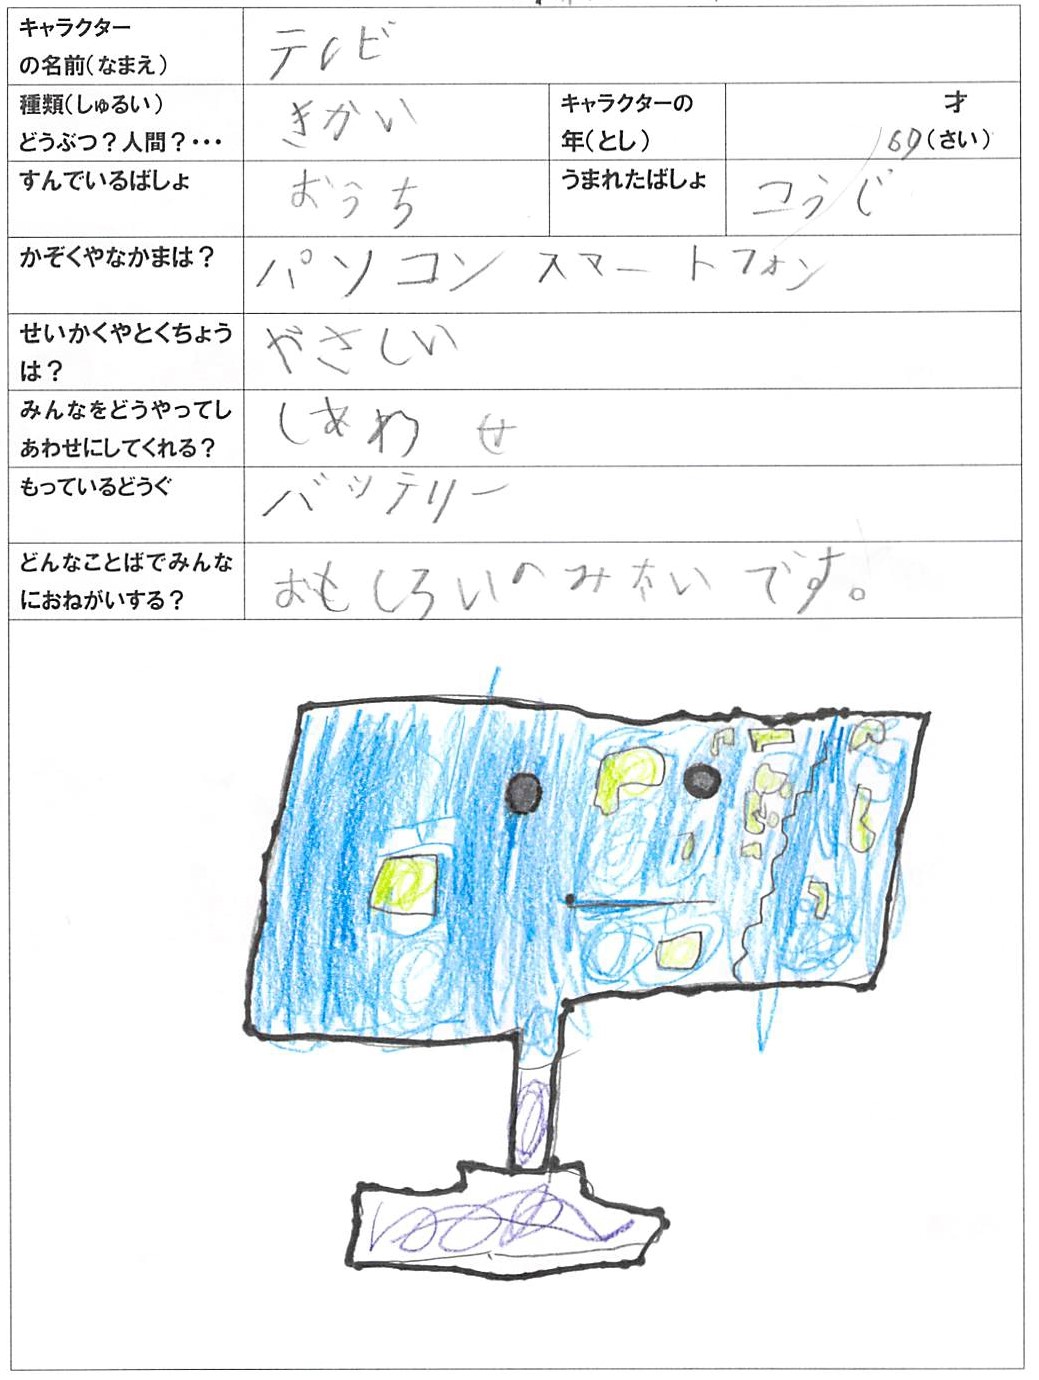 キャラクター
の名前(なまえ)
テレビ
種類(しゅるい)
どうぶつ?人間?・・・
きかい
キャラクターの
年(とし)
才
69(さい)
すんでいるばしょ
おうち
うまれたばしょ
コうじ
かぞくやなかまは?
パソコン スマートフォン
せいかくやとくちょう
は?
やさしい
みんなをどうやってし
あわせにしてくれる?
しあわせ
もっているどうぐ
バッテリー
どんなことばでみんな
におねがいする?
おもしろいのみたいです。